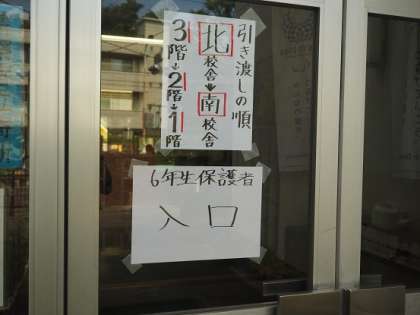 引き渡しの順
北校舎→南校舎
3階→2階→1階
6年生保護者
入口